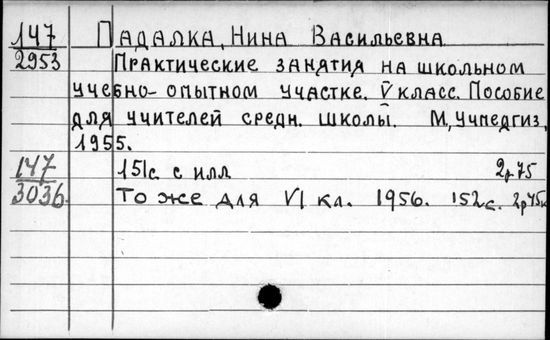 147 Падалка, Нина Васильевна
2953 Практические занятия на школьном
учебно-опытном участке. V класс. Пособие
для учителей средн. школы. М, Учпедгиз,
1955.
147 151с с илл 2р75
3036. То же для VI кл. 1956. 152с. 2р45к